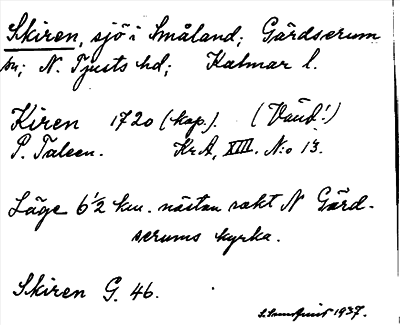 Skiren, sjö i Småland; Gärdserum
sn; N. Tjusts hd; Kalmar l.
Kiren 1720 (kop.). (Vänd!)
P. Taleen. Kr.A, XIII. N:o 13.
Läge 6 1/2 km. nästan rakt N Gärd-
serums kyrka.
Skiren G. 46.
1937.